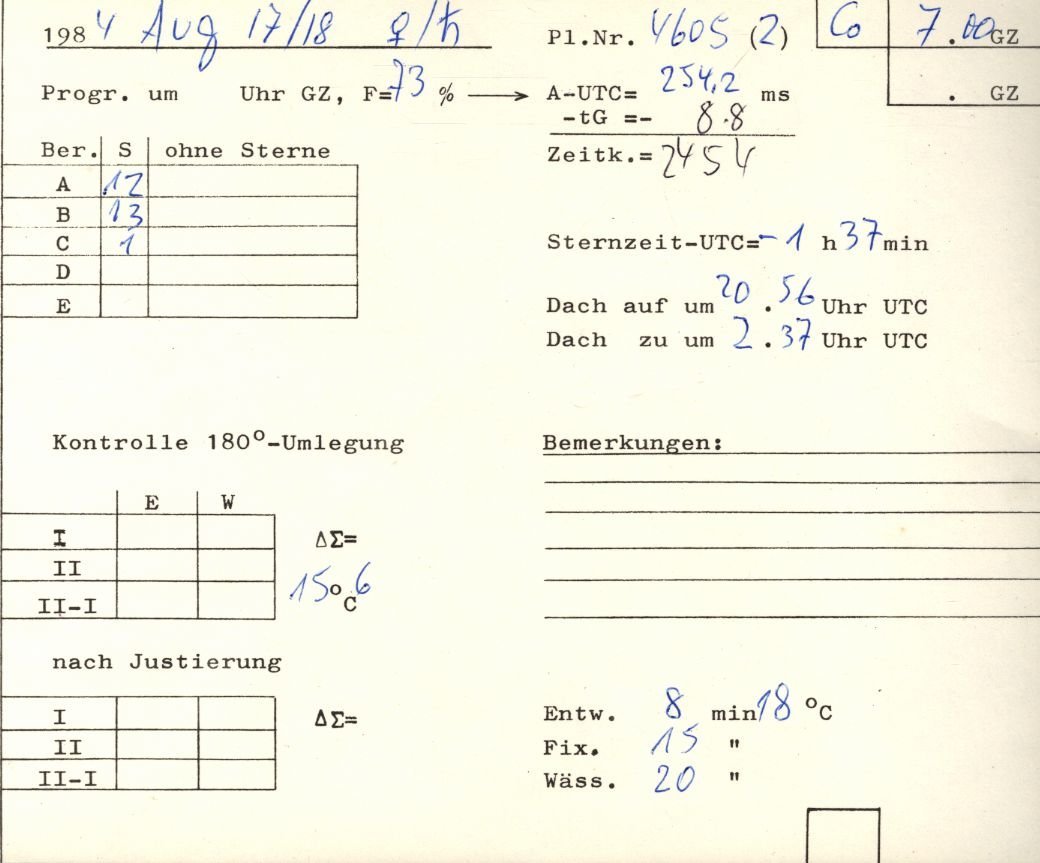 1984 Aug 17/18 ♀/♄ Pl.Nr. 4605 (2) Co 7.00 GZ
Progr. um Uhr GZ, F=73 % → A-UTC= 254,2 ms . GZ
-tG =- 8.8
Ber. S ohne Sterne Zeitk.= 2454
A 12
B 13
C 1
D
E
Sternzeit-UTC=-1 h 37 min
Dach auf um 20.56 Uhr UTC
Dach zu um 2.37 Uhr UTC
Kontrolle 180°-Umlegung Bemerkungen:
E W
I ΔΣ=
II
15°C6
II-I
nach Justierung
I ΔΣ=
II
II-I
Entw. 8 min 18 °C
Fix. 15 "
Wäss. 20 "